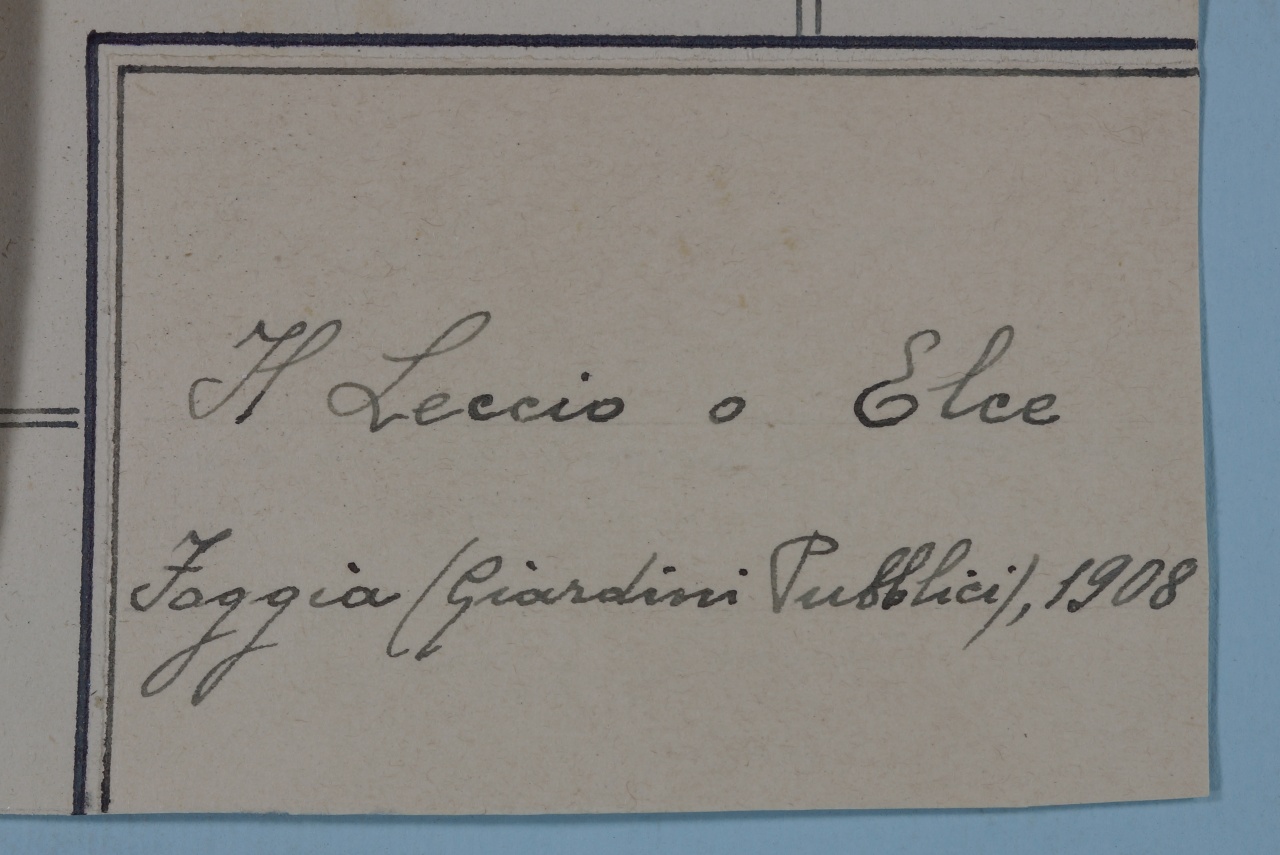 Il Leccio o Elce
Foggia (Giardini Pubblici), 1908